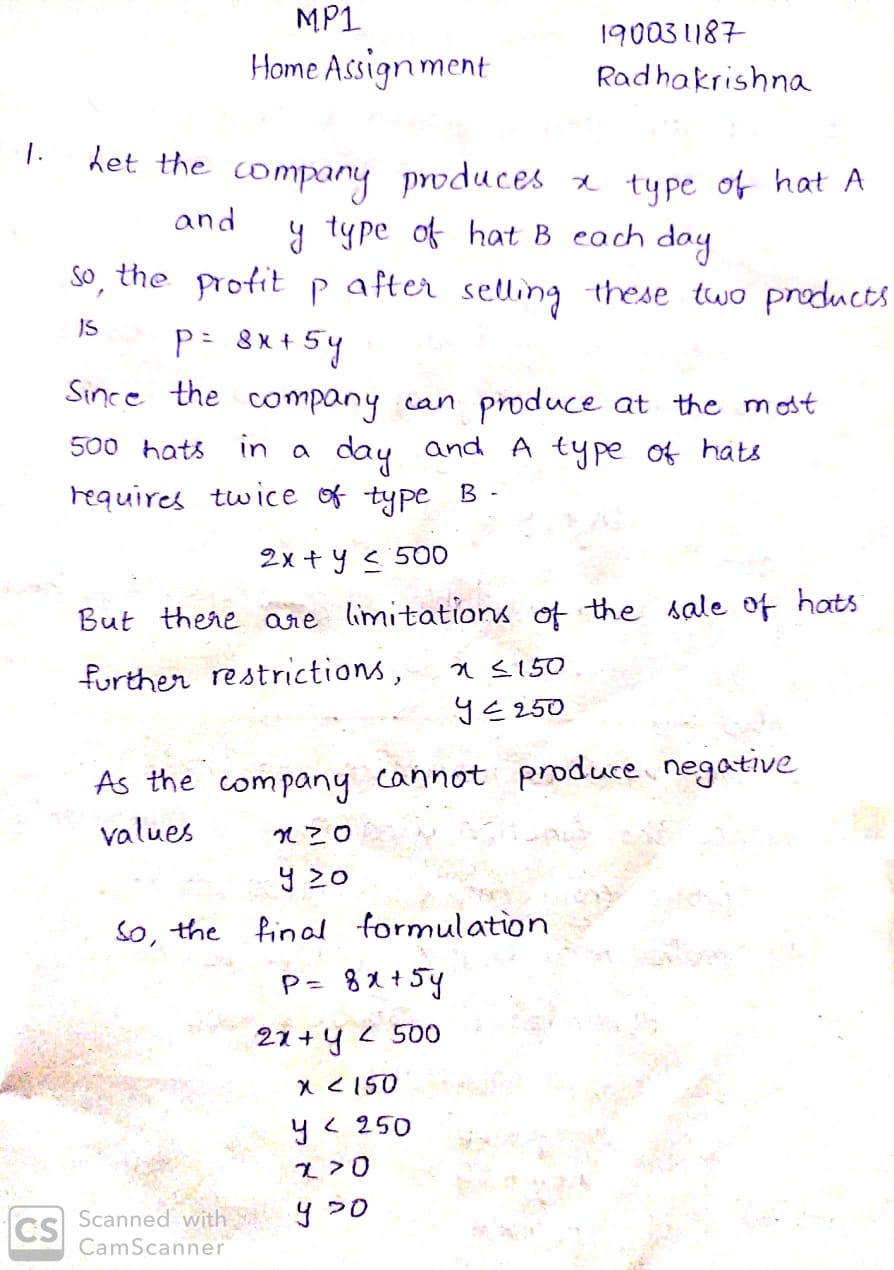 MP1
Home Assignment
190031187
Radhakrishna
1. Let the company produces x type of hat A
and y type of hat B each day
so, the profit p after selling these two products
is
p = 8x + 5y
Since the company can produce at the most
500 hats in a day and A type of hats
requires twice of type B -
2x + y ≤ 500
But there are limitations of the sale of hats
further restrictions, x ≤ 150
y ≤ 250
As the company cannot produce negative
values x ≥ 0
y ≥ 0
So, the final formulation
P = 8x + 5y
2x + y < 500
x < 150
y < 250
x > 0
y > 0
CS Scanned with
CamScanner